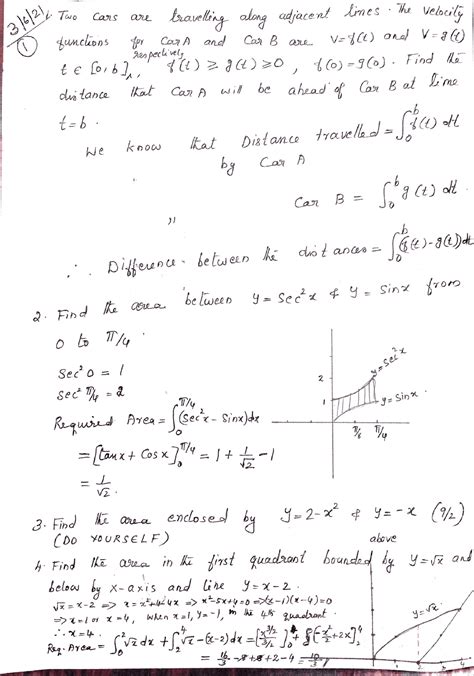 3/6/21
1. Two Cars are travelling along adjacent lines. The velocity
functions for Car A and Car B are V=f(t) and V=g(t)
respectively
t ∈ [0,b], f(t) ≥ g(t) ≥ 0, f(0) = g(0). Find the
distance that Car A will be ahead of Car B at time
t=b.
We know that Distance travelled = ∫₀ᵇ f(t) dt
by Car A
" Car B = ∫₀ᵇ g(t) dt.
∴ Difference between the distances = ∫₀ᵇ (f(t)-g(t))dt
2. Find the area between y=Sec²x & y=Sinx from
0 to π/4
Sec² 0 = 1
Sec² π/4 = 2
Required Area = ∫₀^(π/4) (Sec²x - Sinx)dx
= [tanx + Cosx]₀^(π/4) = 1 + 1/√2 - 1
= 1/√2.
y=Sec²x
2
1
y=Sinx
π/6 π/4
3. Find the area enclosed by y=2-x² & y=-x (9/2)
(DO YOURSELF)
above
4. Find the area in the first quadrant bounded by y=√x and
below by x-axis and line y=x-2.
√x = x-2 => x = x²+4-4x => x²-5x+4=0 => (x-1)(x-4)=0
=> x=1 or x=4, when x=1, y=-1, in the 4th quadrant
∴ x=4.
Req. Area = ∫₀² √x dx + ∫₂⁴ √x-(x-2)dx = [x^(3/2)/(3/2)]₀⁴ + [-x²/2+2x]₂⁴
= 16/3 -8+8+2-4 = 10/3
y=√x